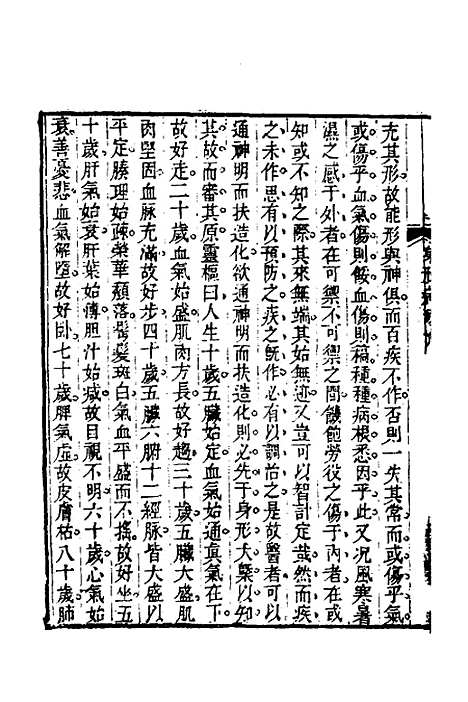 充其形故能形與神俱而百疾不作否則一失其常而或傷乎氣
或傷乎血氣傷則餒血傷則稿種種病根悉因乎此又况風寒暑
濕之感于外者在可禦不可禦之間饑飽勞役之傷于內者在或
知或不知之際其來無端其始無迹又豈可以智計定哉然而疾
之未作思有以預防之疾之旣作必有以調治之是故醫者可以
通神明而扶造化欲通神明而扶造化則必先于身形大槩以知
其故而審其原靈樞曰人生十歲五臟始定血氣始通真氣在下
故好走二十歲血氣始盛肌肉方長故好趨三十歲五臟大盛肌
肉堅固血脉充滿故好步四十歲五臟六腑十二經脉皆大盛以
平定腠理始疎榮華頽落鬢髮斑白氣血平盛而不搖故好坐五
十歲肝氣始衰肝葉始傳胆汁始减故目視不明六十歲心氣始
衰善憂悲血氣解墮故好卧七十歲脾氣虛故皮膚枯八十歲肺